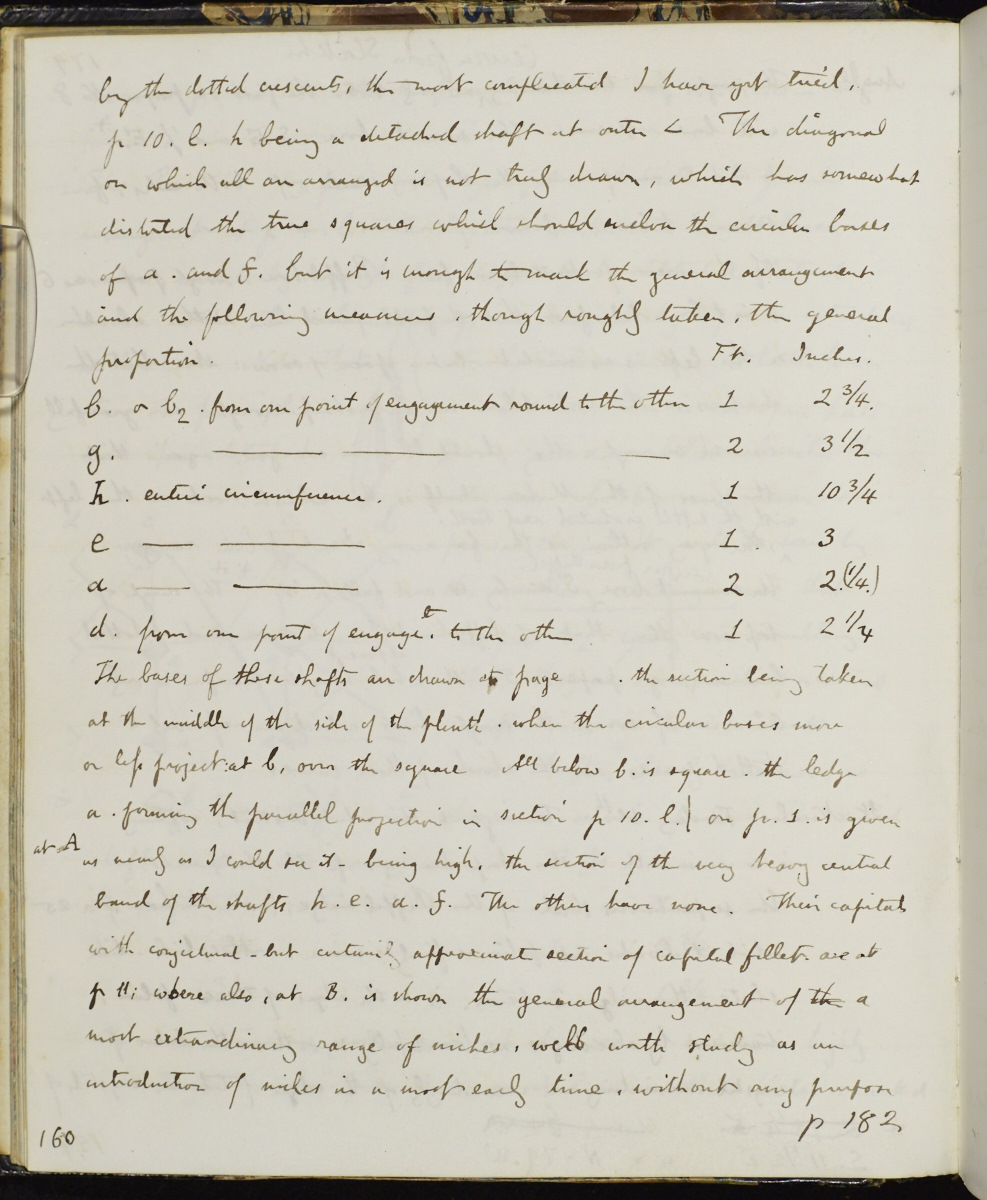 by the dotted crescents, the most complicated I have yet tried,
p 10. l. h being a detached shaft at outer ∠ The diagonal
on which all are arranged is not truly drawn, which has somewhat
distorted the true squares which should enclose the circular bases
of a. and f. but it is enough to mark the general arrangement
and the following measures, though roughly taken, the general
proportion. Ft. Inches.
b. or b2. from one point of engagement round to the other 1 2 3/4.
g. —— —— — 2 3 1/2
h. entire circumference. 1 10 3/4
e — —— 1. 3
a — —— 2 2.(1/4.)
d. from one point of engaget. to the other 1 2 1/4
The bases of these shafts are drawn at page . the section being taken
at the middle of the side of the plinth. when the circular bases more
or less project: at b, over the square All below b. is square. the ledge
a. forming the parallel projection in section p 10. l.) on p. 1. is given
at A
as nearly as I could see it - being high, the section of the very heavy central
band of the shafts h. e. a. f. The others have none. Their capitals
with conjectural - but certainly approximate section of capital fillet. are at
p 11; where also, at B. is shown the general arrangement of the a
most extraordinary range of niches, well worth study as an
introduction of niches in a most early time, without any purpose
p 182
160